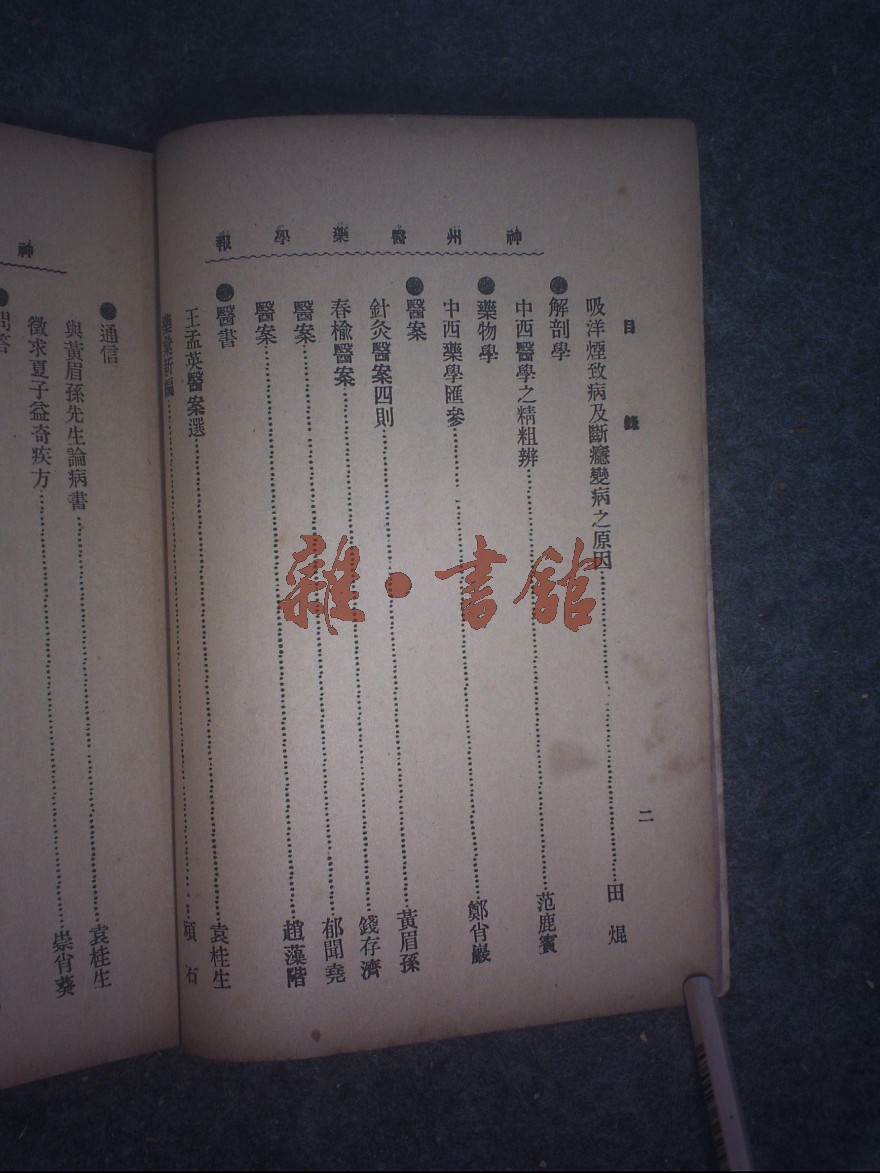 神州醫藥學報
目錄
二
吸洋煙致病及斷癮變病之原因 田焜
解剖學
中西醫學之精粗辨 范鹿賓
藥物學
中西藥學匯參 鄭肖巖
醫案
針灸醫案四則 黃眉孫
春榆醫案 錢存濟
醫案 郁聞堯
醫案 趙藻階
醫書
王孟英醫案選 袁桂生
藥彙新編 石
神
通信
與黃眉孫先生論病書 袁桂生
徵求夏子益奇疾方 崇肖葵
問答
雜·書館